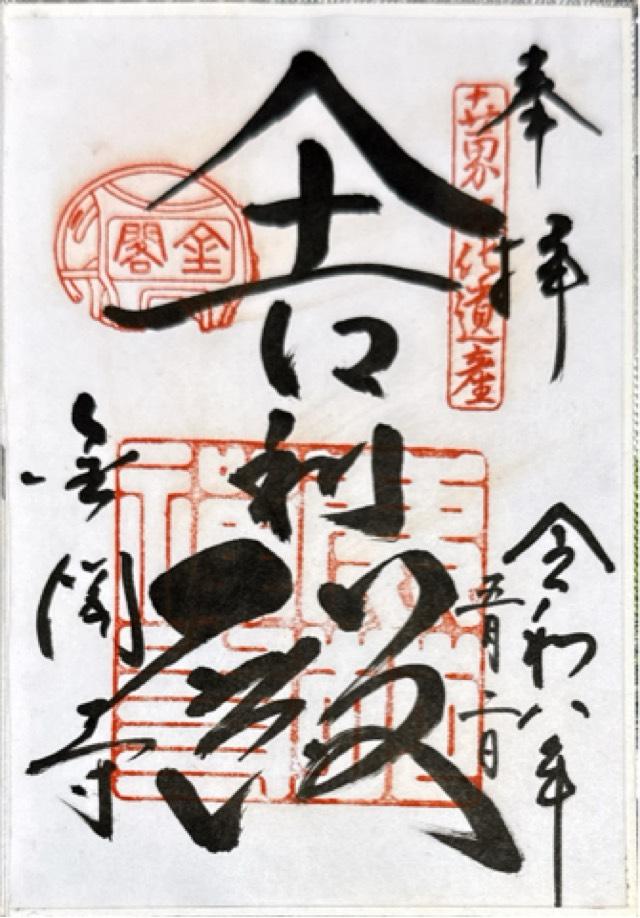 奉拝
世界文化遺産
令和八年
五月二日
舎利殿
金閣
金閣寺